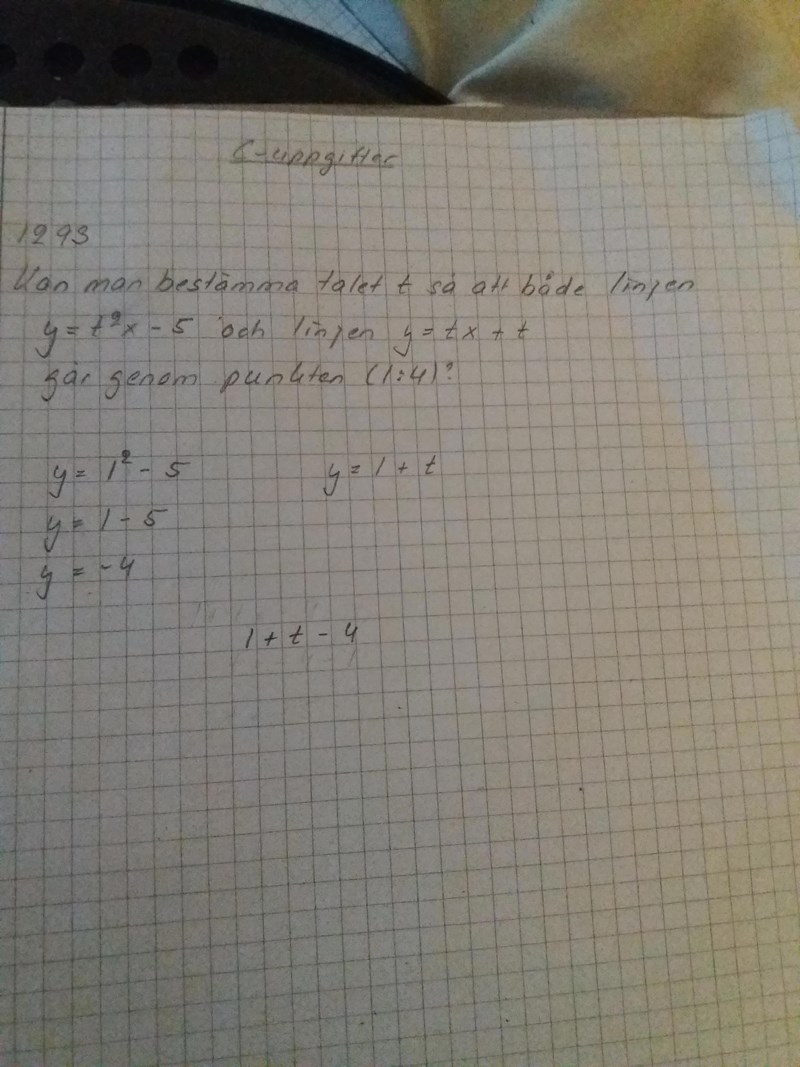 C-uppgifter
1293
Kan man bestämma talet t så att både linjen
y = t²x - 5 och linjen y = tx + t
går genom punkten (1;4)?
y = 1² - 5 y = 1 + t
y = 1 - 5
y = -4
1 + t - 4